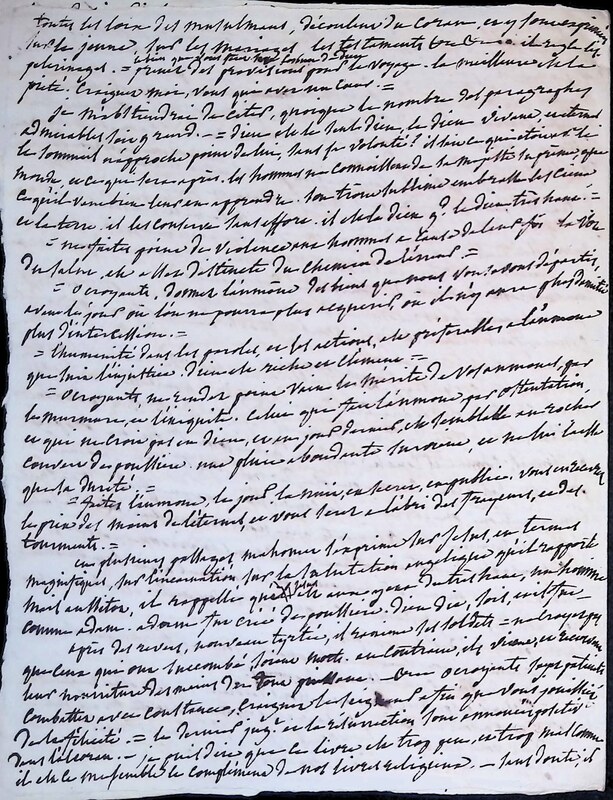 toutes les loix des musulmans, découlent du Coran, et y sont exprimées
sur le jeune, sur les mariages, les testaments &a &a il regle les
pelerinages. = prenez des provisions pour le voyage. la meilleure est la
piété. Craignez moi, vous qui avez un Cœur. =
je m'abstiendrai de citer, quoique le nombre des paragraphes
admirables soit grand. = dieu est le seul dieu, le dieu vivant, eternel
le sommeil n'approche point de lui, sans sa volonté! il sait ce qui etoit avant le
monde, et ce que sera après. les hommes ne connoissent de sa majesté suprême que
ce qu'il veut bien leur en apprendre. son trône sublime embrasse les Cieux
et la terre. il les conserve sans effort. il est le dieu grand le dieu tres haut. =
= ne faites point de violence aux hommes a cause de leur foi. la voie
du salut, est assez distincte du chemin de l'erreur =
= O croyants, donnez l'aumone des biens que nous vous avons départis,
avant le jour où l'on ne pourra plus acquerir, où il n'y aura plus d'amitié
plus d'intercession. =
= l'humanité dans les paroles, et les actions, est préférable a l'aumone
que suit l'injustice. dieu est riche et clément =
= O croyants, ne rendez point vain le mérite de vos aumones, par
le murmure, et l'iniquité. Celui qui fait l'aumone par ostentation
et qui ne croit pas en dieu, et au jour dernier, est semblable au rocher
couvert de poussiere. une pluie abondante survient, et ne lui laisse
que sa dureté =
= faites l'aumone, le jour, la nuit, en secret, en public. vous en recevrez
le prix des mains de l'éternel, et vous serez a l'abri des frayeurs, et des
tourments. =
en plusieurs passages mahomet s'exprime sur Jesus, en termes
magnifiques, sur l'incarnation, sur la salutation angelique qu'il rapporte
mais aussitot, il rappelle que Jesus aux yeux du tres haut, un homme
comme adam. adam fut créé de poussiere. dieu dit, sois, et il fut
après des revers, nouveau tyrtée, il ranime ses soldats = ne croyez pas
que ceux qui ont succombé soient morts. au contraire, ils vivent, et reçoivent
leur nourriture des mains du tout puissant. = O croyants soyez patients
combattez avec constance, craignez le seigneur afin que vous jouissiez
de la félicité. = le dernier jugt. et la résurrection sont annoncés
dans l'alcoran. = je puis dire que ce livre est trop peu, et trop mal connu
il est ce me semble le complément de nos livres religieux. = sans doute, il